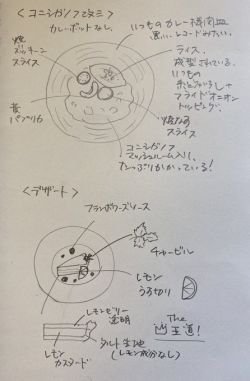 <コニシガノフミタミ>
カレーポットなし。
いつものカレー楕円皿
黒い、レコードみたい。
焼
ズッキーニ
スライス
ライス.
成型されている.
いつもの
フライドオニオン
トッピング.
黄
パプリカ
焼なす
スライス
コニシガノフ
マッシュルーム入り,
たっぷりかかっている!
<デザート>
フランボワーズソース
チャービル
レモン
うす切り
レモンゼリー
透明
タルト生地
(レモン成分なし)
レモン
カスタード
The
王道!